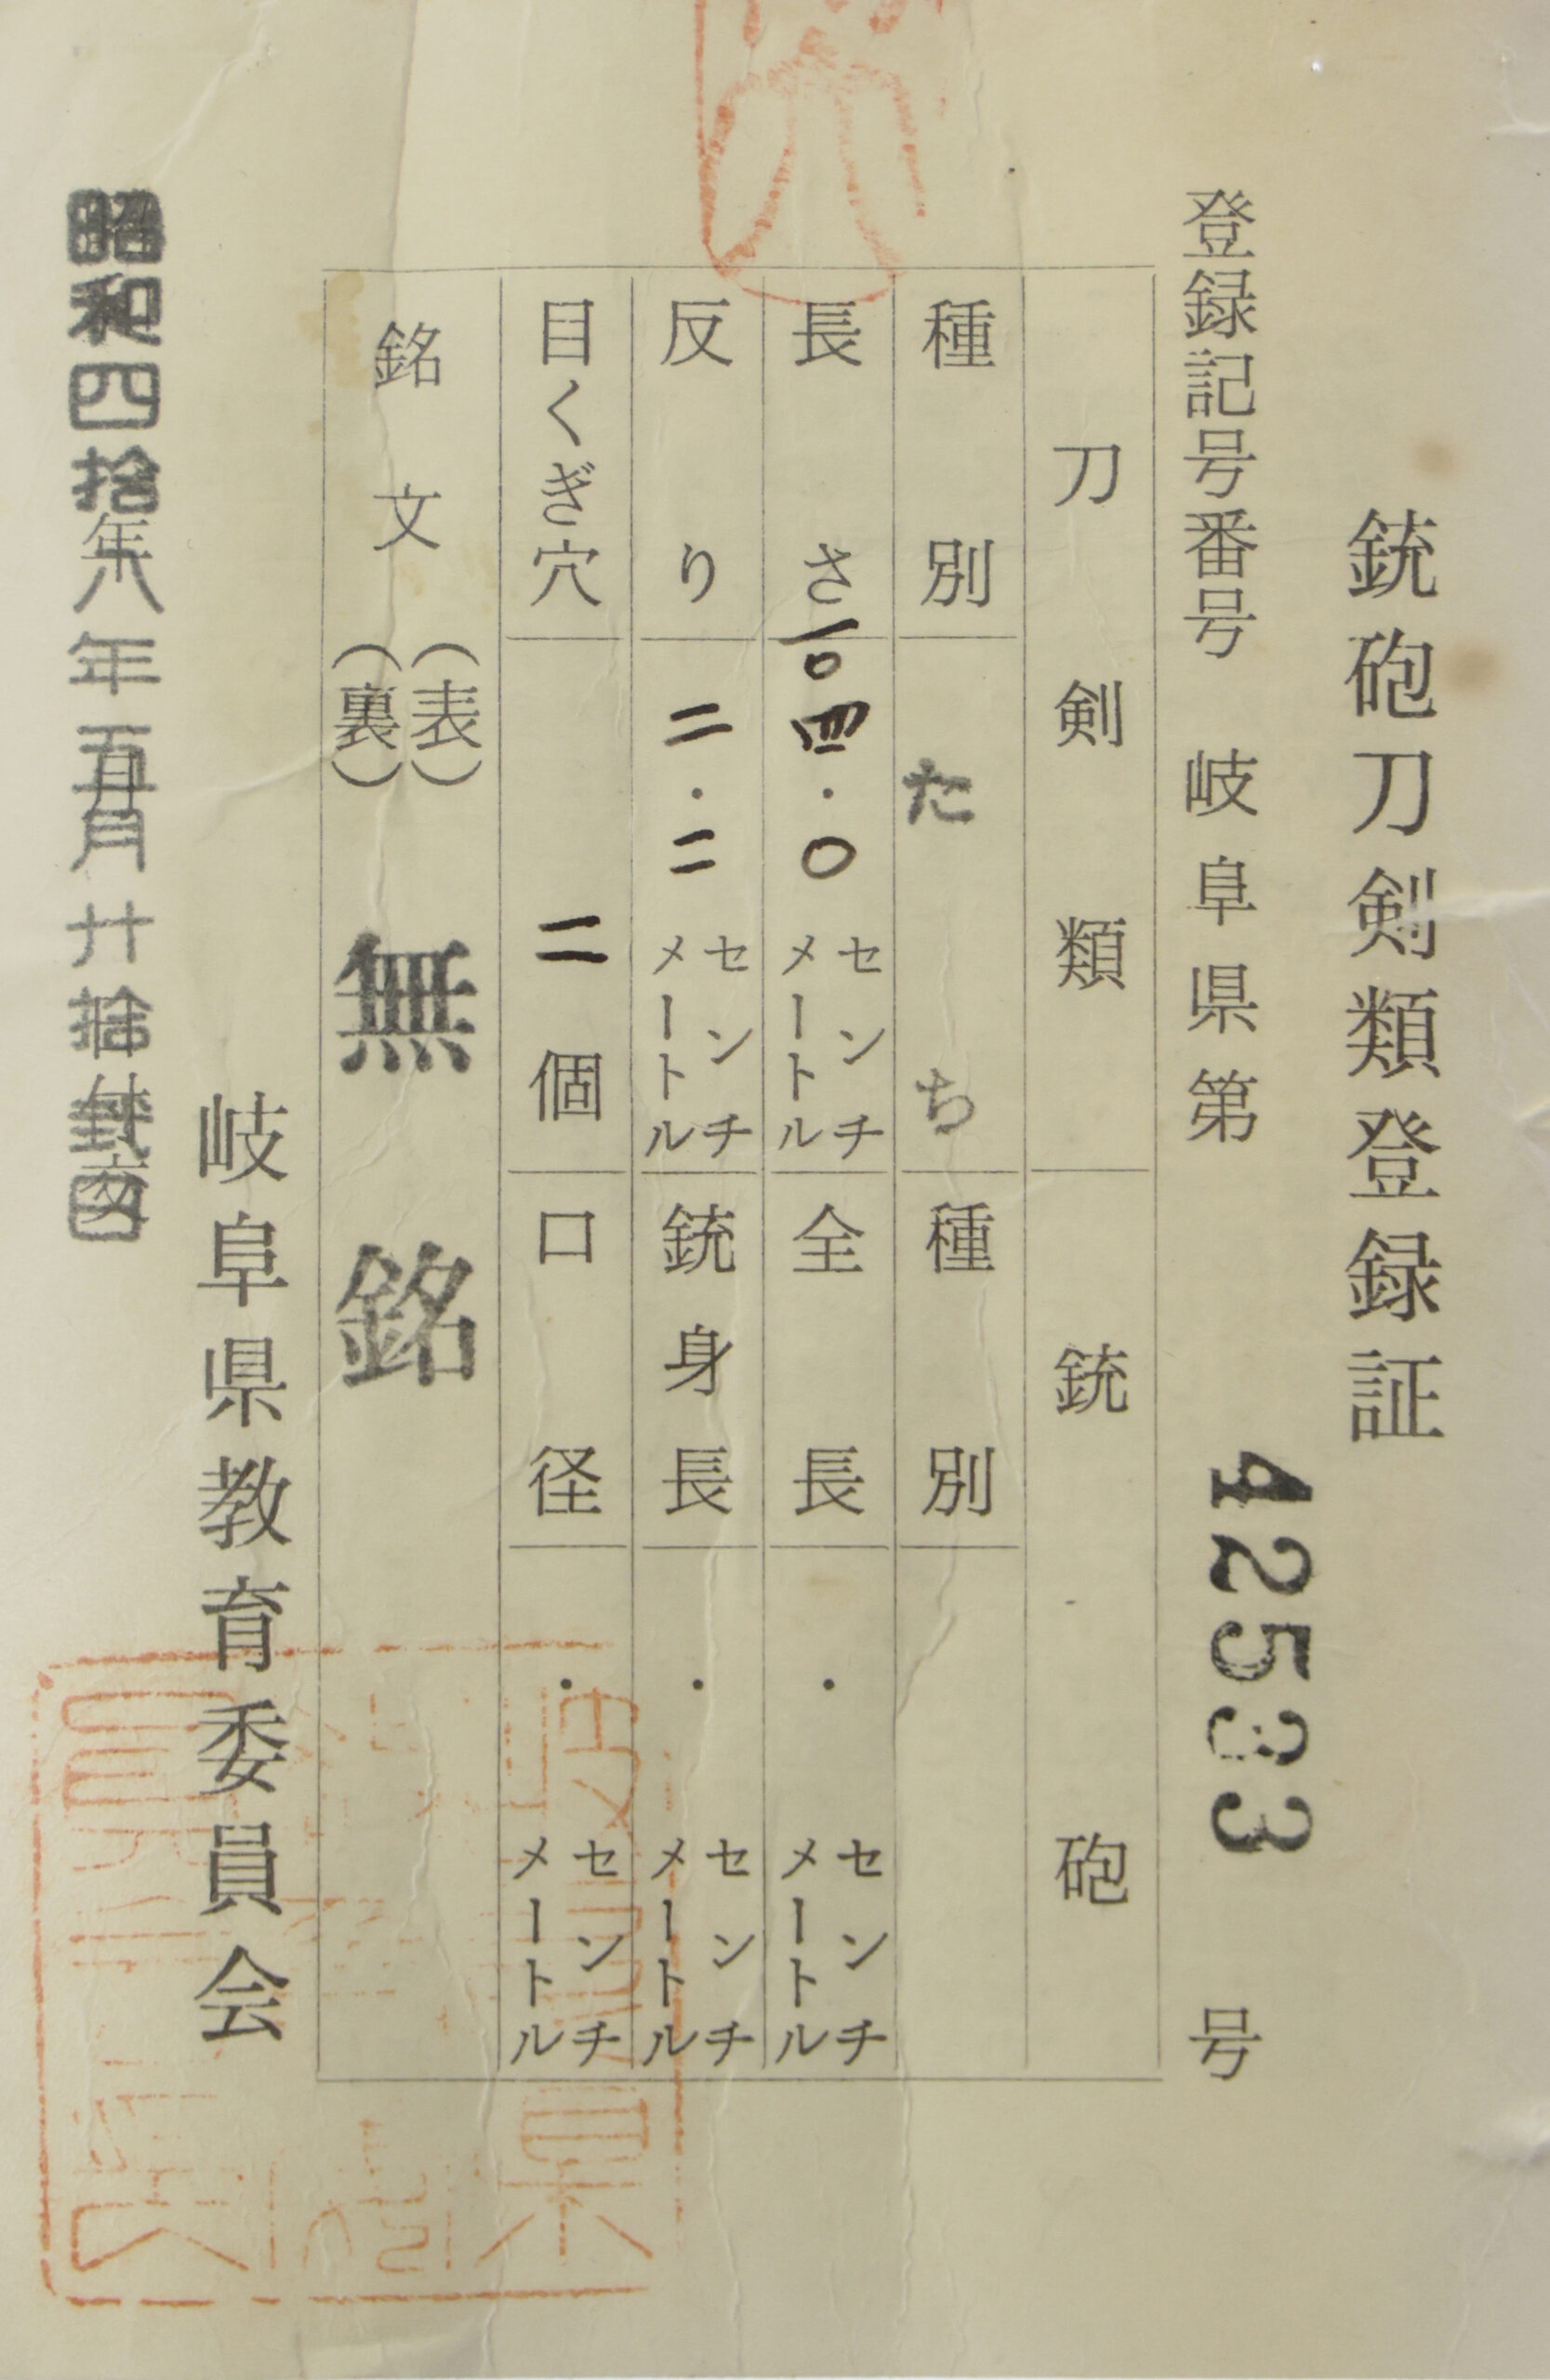 銃砲刀剣類登録証
登録記号番号 岐阜県第 42533 号
刀剣類 銃砲
種別 たち 種別
長さ 一〇四・〇 センチメートル 全長 ・ センチメートル
反り 二・二 センチメートル 銃身長 ・ センチメートル
目くぎ穴 二個 口径 ・ センチメートル
銘文 (表) 無銘
(裏)
岐阜県教育委員会
昭和四拾八年五月廿